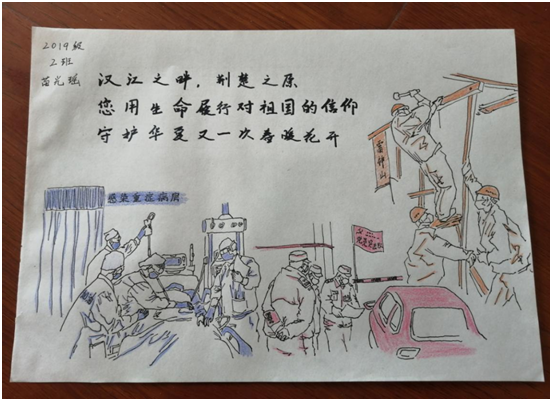 2019级
2班
苗光瑶
汉江之畔，荆楚之原
您用生命履行对祖国的信仰
守护华夏又一次春暖花开
雷神山
感染重症病房